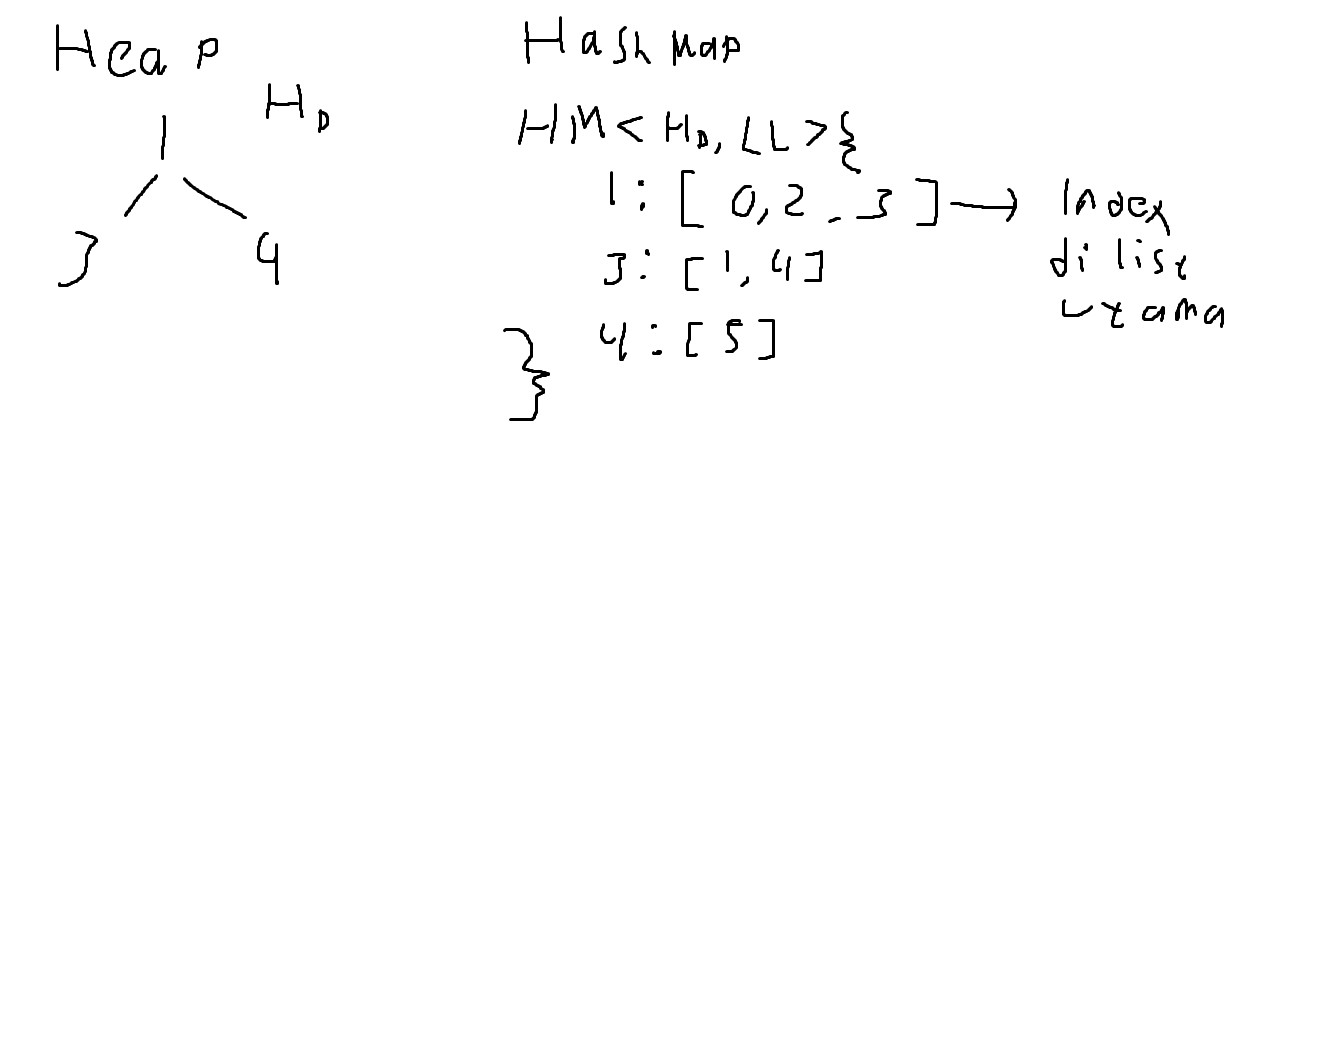 Heap
H_D
1
3 4
Hash Map
HM < H_D, LL > {
1 : [ 0, 2 , 3 ] → Index
di list
utama
3 : [ 1, 4 ]
4 : [ 5 ]
}